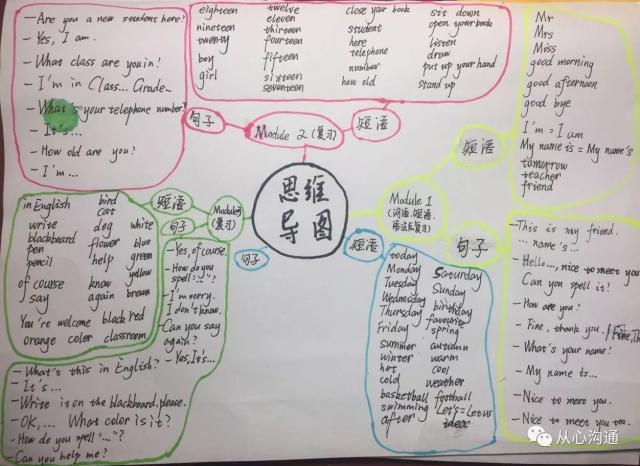 -Are you a new student here?
-Yes, I am.
-What class are you in?
-I'm in Class... Grade...
-What's your telephone number?
-It's...
-How old are you?
-I'm...
句子
eighteen twelve close your book sit down
nineteen eleven open your book
twenty thirteen student listen
boy fourteen here draw
girl fifteen telephone put up your hand
sixteen number stand up
seventeen how old
Module 2 (复习)
短语
Mr
Mrs
Miss
good morning
good afternoon
good bye
I'm = I am
My name is = My name's
tomorrow
teacher
friend
短语
思维
导图
Module 1
(词语、短语、
语法点复习)
句子
-This is my friend.
... name's...
-Hello..., nice to meet you
Can you spell it?
-How are you?
-Fine, thank you.
-What's your name?
-My name is...
-Nice to meet you.
-Nice to meet you too.
短语
句子
Module3
(复习)
in English bird
cat
write dog white
blackboard flower blue
pen help green
pencil know yellow
of course again brown
say
You're welcome black red
orange color classroom
-Yes, of course.
-How do you
spell "..."?
-I'm sorry.
I don't know.
-Can you say
again?
-Yes, It's...
-What's this in English?
-It's...
-Write it on the blackboard, please.
-OK,... What color is it?
-How do you spell "..."?
-Can you help me?
句子
短语
today
Monday Saturday
Tuesday Sunday
Wednesday birthday
Thursday favourite
Friday spring
summer autumn
winter warm
hot cool
cold weather
basketball football
swimming Let's = Let us
after idea
从心沟通